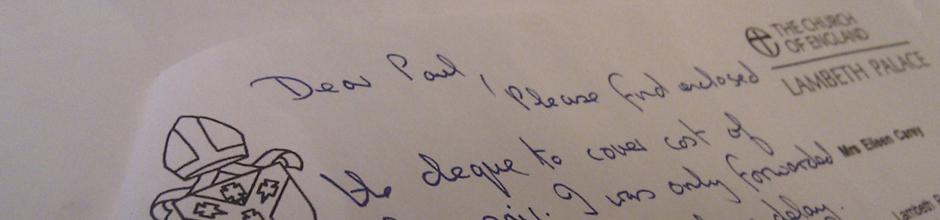 THE CHURCH
OF ENGLAND
LAMBETH PALACE
Dear Paul, Please find enclosed
the cheque to cover cost of
I was only forwarded
Mrs Eileen Carey
delay.
Lambeth